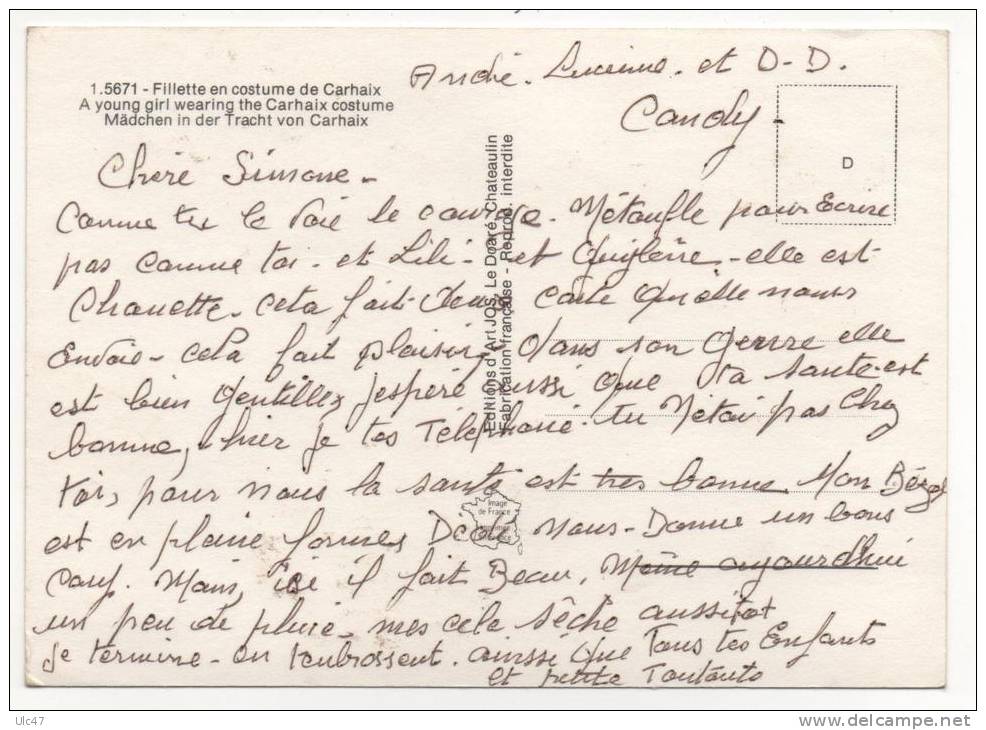 1.5671 - Fillette en costume de Carhaix
A young girl wearing the Carhaix costume
Mädchen in der Tracht von Carhaix
André. Lucienne. et D-D.
Candy-
D
Editions d'Art JOS, Le Doaré, Chateaulin
Fabrication française - Reprod. interdite
Chère Simone -
Comme tu le voie le courage. Métoufle pour Ecrire
pas comme toi - et Lili - et - elle est
Chouette. ceta fait carte Qu'elle nous
Envoie - cela fait plaisir, dans son Genre elle
est bien Gentille, j'espère aussi Que ta santé est
bonne, hier je tes Téléphoné. Tu Nétai pas Chez
toi, pour nous la santé est tres bonne. Mon
est en pleine formes Dédé nous - Donne un bons
coup. Main, ici il fait Beau, Même aujourd'hui
un peu de pluie. mes cela sèche aussitot
Je termine - en t'enbrossent. ainssi Que Tous tes Enfants
et petite Toutouts
Image
de France
Ulc47
www.delcampe.net